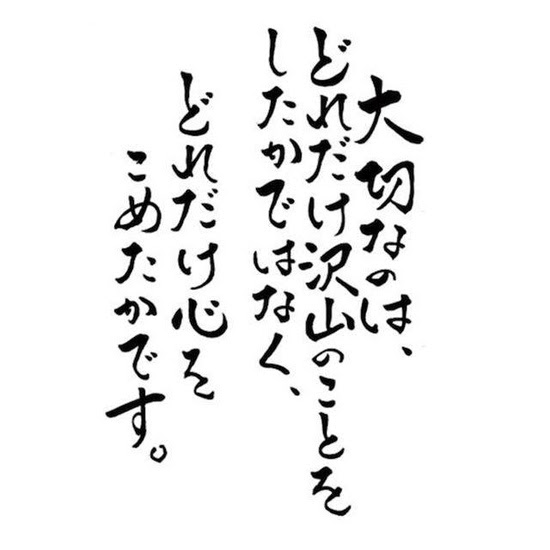 大切なのは、
どれだけ沢山のことを
したかではなく、
どれだけ心を
こめたかです。